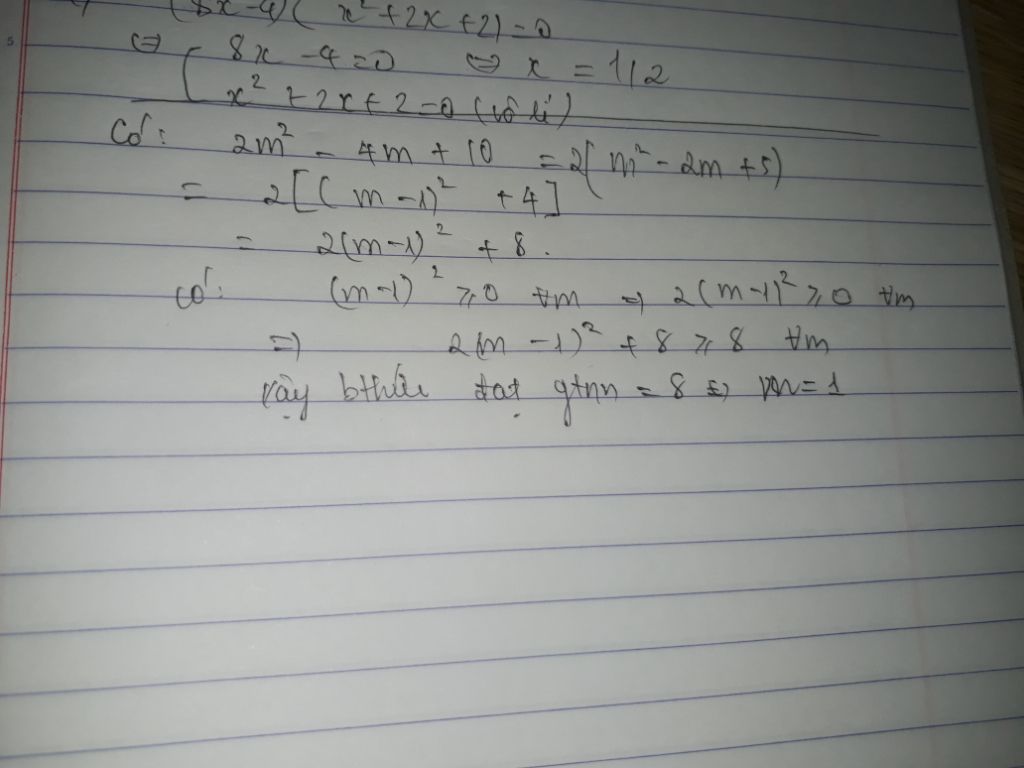 (8x-4)(x²+2x+2)=0
⇔ [ 8x -4=0 ⇔ x = 1/2
x² +2x+2=0 (vô lí)
Có: 2m² - 4m + 10 = 2(m² - 2m +5)
= 2[(m-1)² +4]
= 2(m-1)² + 8.
có: (m-1)² ⩾0 ∀m ⇒ 2(m-1)² ⩾0 ∀m
⇒ 2(m -1)² + 8 ⩾ 8 ∀m
vậy bthức đạt gtnn = 8 ⇔ m=1